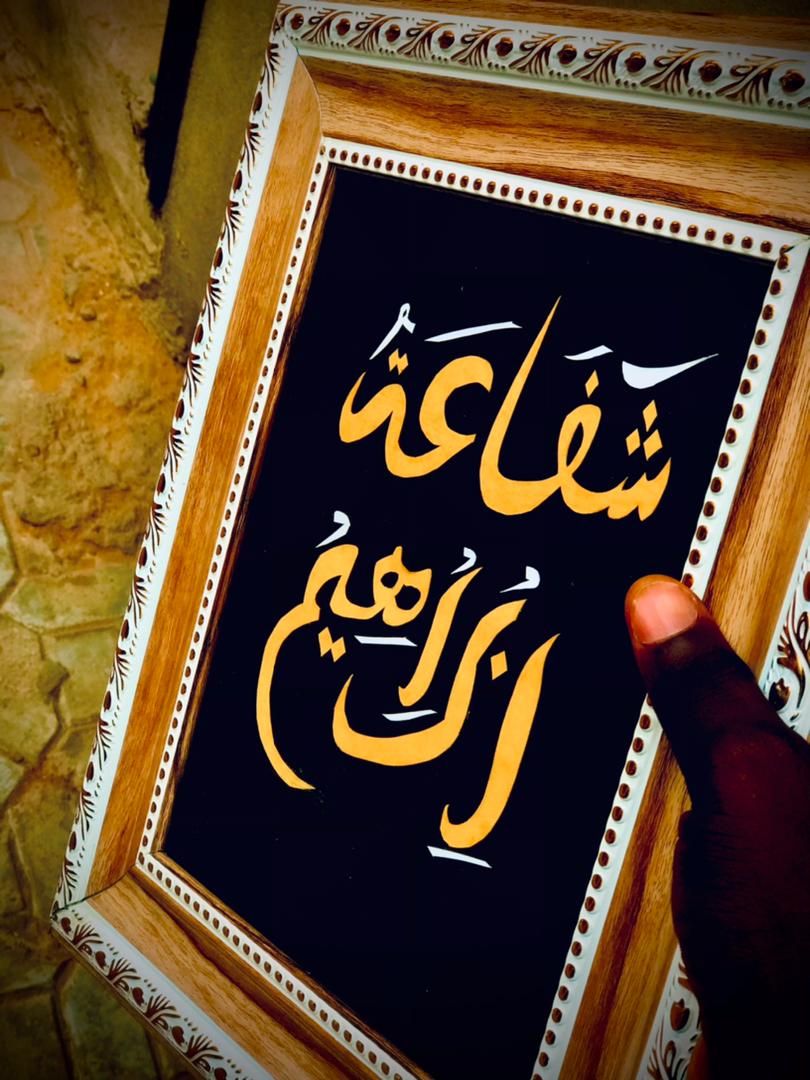 شَفَاعَةُ
إِبْرَاهِيمُ